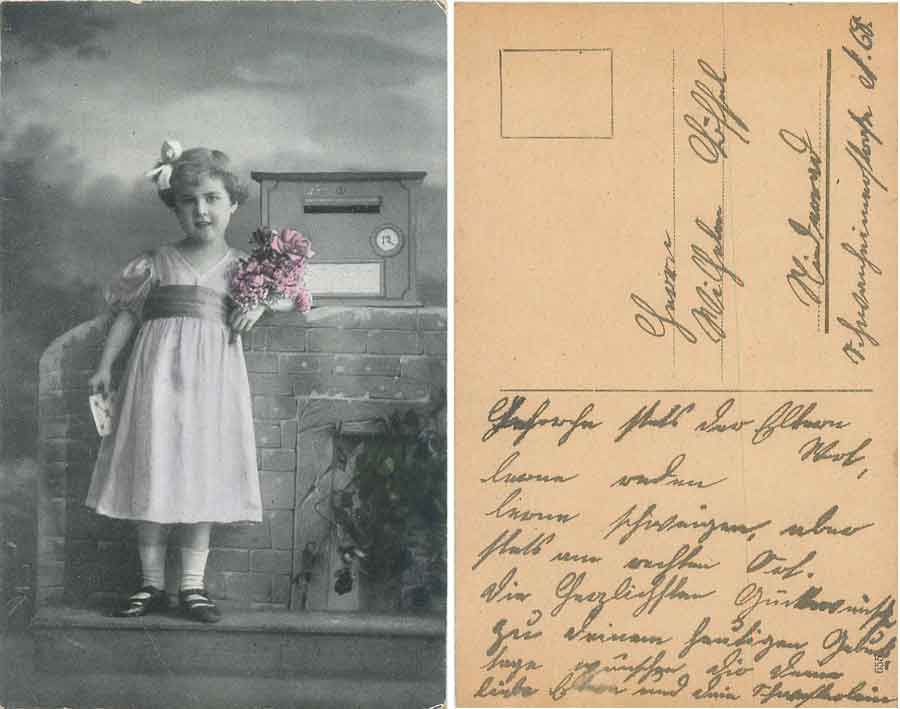 12
Herrn
Wilhelm Löffel
Niederrad
Schwanheimerstraße N. 68.
Gehorche stets der Eltern
Wort,
lerne reden
lerne schweigen, aber
stets am rechten Ort.
Die herzlichsten Glückwünsche
zu deinem heutigen Geburts
tage wünschen dir deine
liebe Eltern und dein Schwesterlein